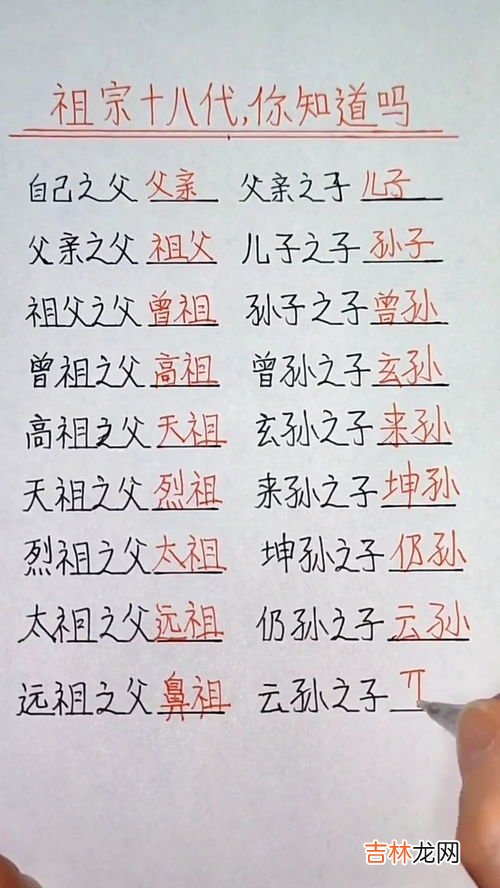 祖宗十八代,你知道吗
自己之父 父亲 父亲之子 儿子
父亲之父 祖父 儿子之子 孙子
祖父之父 曾祖 孙子之子 曾孙
曾祖之父 高祖 曾孙之子 玄孙
高祖之父 天祖 玄孙之子 来孙
天祖之父 烈祖 来孙之子 坤孙
烈祖之父 太祖 坤孙之子 仍孙
太祖之父 远祖 仍孙之子 云孙
远祖之父 鼻祖 云孙之子
吉林龙网